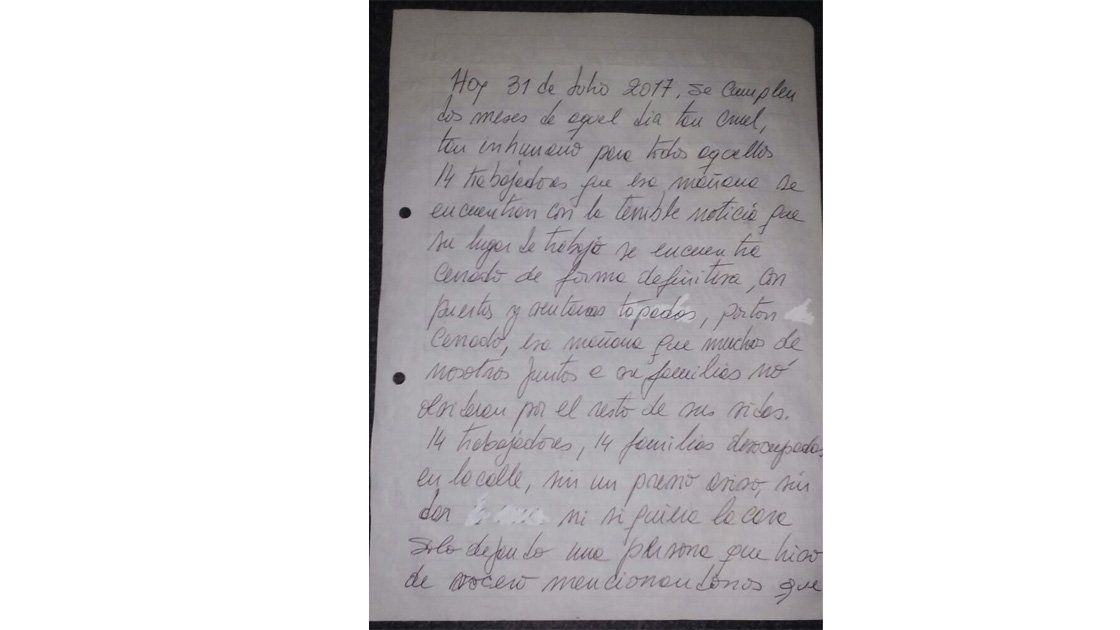 Hoy 31 de Julio 2017, se cumplen
dos meses de aquel dia tan cruel,
tan inhumano para todos aquellos
14 trabajadores que esa mañana se
encuentran con la terrible noticia que
su lugar de trabajo se encuentra
cerrado de forma definitiva, con
puertas y ventanas tapadas, porton
cerrado, esa mañana que muchos de
nosotros juntos a su familias no
olvidaran por el resto de sus vidas.
14 trabajadores, 14 familias desocupadas
en la calle, sin un previo aviso, sin
dar ni siquiera la cara
solo dejando una persona que hiso
de vocero mencionandonos que